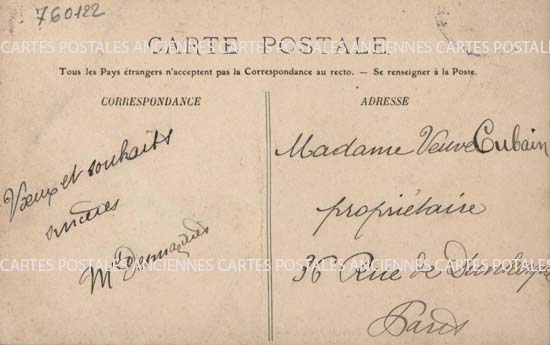 760122
CARTE POSTALE
CARTES POSTALES ANCIENNES CARTES POSTALES ANCIENNES CARTES POSTALES
Tous les Pays étrangers n'acceptent pas la Correspondance au recto. — Se renseigner à la Poste.
CORRESPONDANCE
Vœux et souhaits
sincères
ADRESSE
Madame Veuve Cubain
propriétaire
36 Rue de
Paris
CARTES POSTALES ANCIENNES CARTES POSTALES ANCIENNES CARTES POSTALES